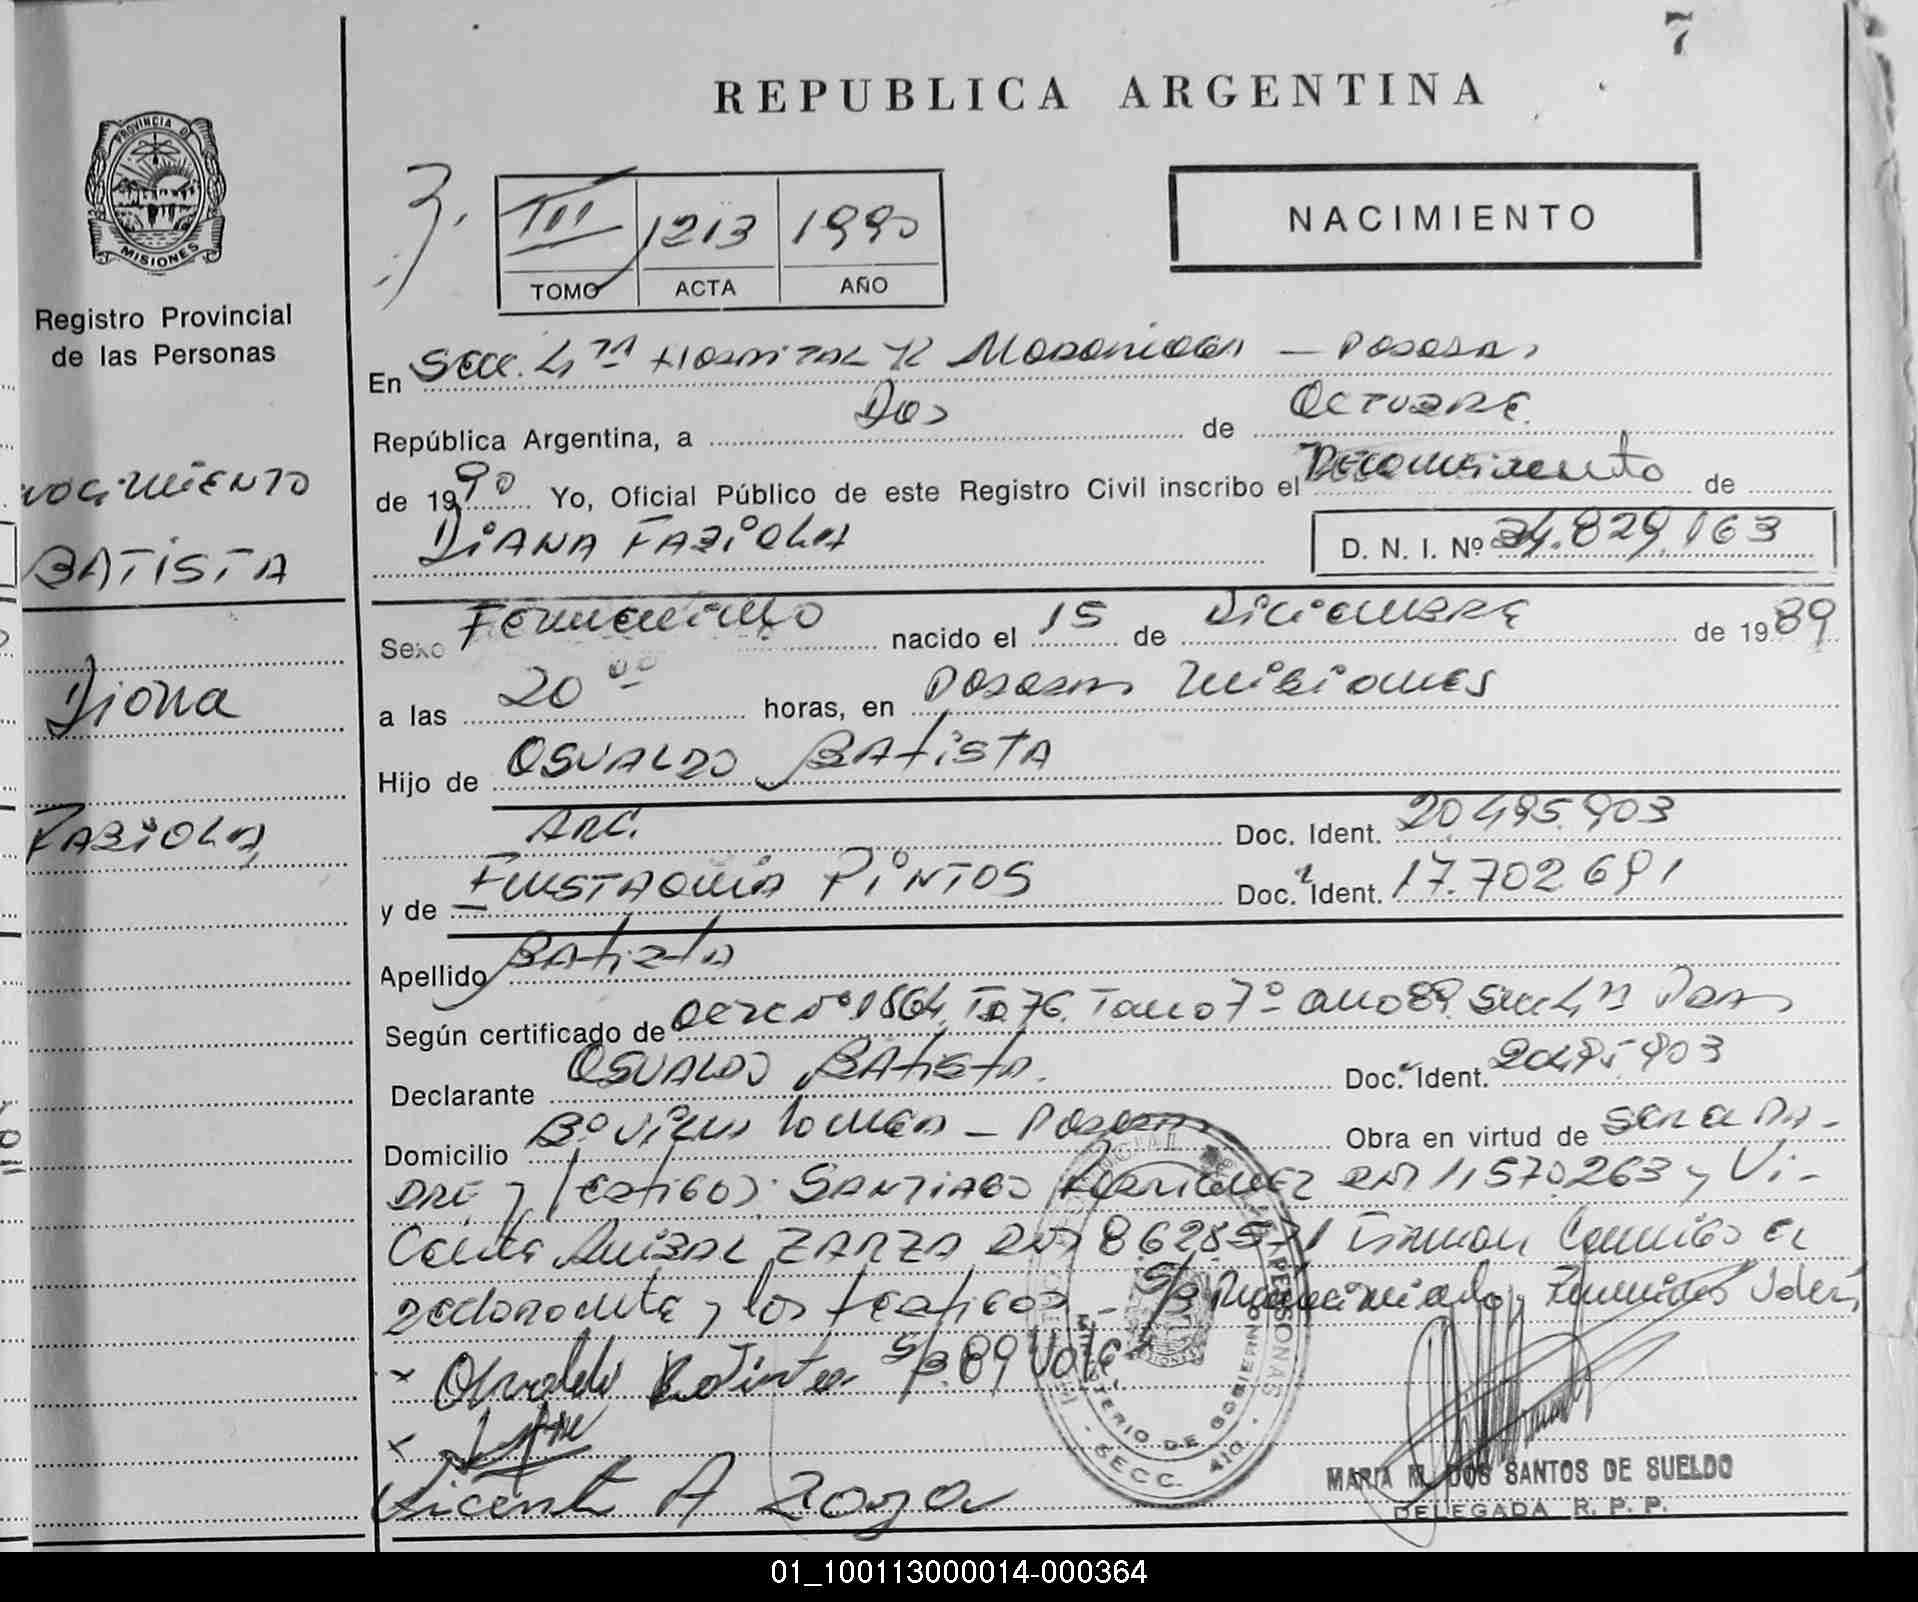 7
REPUBLICA ARGENTINA
PROVINCIA D
MISIONES
Registro Provincial
de las Personas
NACIMIENTO
III 1213 1990
TOMO ACTA AÑO
En SECC. 4ta HOSPITAL R Madariaga - Posadas
República Argentina, a Dos de OCTUBRE
de 1990 Yo, Oficial Público de este Registro Civil inscribo el Reconocimiento de
DIANA FABIOLA D. N. I. Nº 34.829.163
Sexo Femenino nacido el 15 de Diciembre de 1989
a las 20 00 horas, en Posadas Misiones
Hijo de OSVALDO BATISTA
ARG. Doc. Ident. 20.495.903
y de EUSTAQUIA PINTOS Doc. Ident. 17.702.691
Apellido Batista
Según certificado de acta Nº 1864 Fo 76 Tomo 7º año 89 Secc 4ta Pdas
Declarante OSVALDO BATISTA. Doc. Ident. 20495.903
Domicilio Bº Villa - Posadas Obra en virtud de SER EL PA-
DRE y testigos: SANTIAGO DNI 11.570.263 y Vi-
cente Anibal ZARZA DNI 8628571 Firman conmigo el
declarante y los testigos - S/B Reconocimiento, Femenino Valen
x Osvaldo Batista S/B. 89 Vale
x
Vicente A Zarza
PERSONAS
MINISTERIO DE GOBIERNO
SECC. 4ta.
MARIA M. DOS SANTOS DE SUELDO
DELEGADA R. P. P.
nocimiento
BATISTA
Diana
FABIOLA
01_100113000014-000364